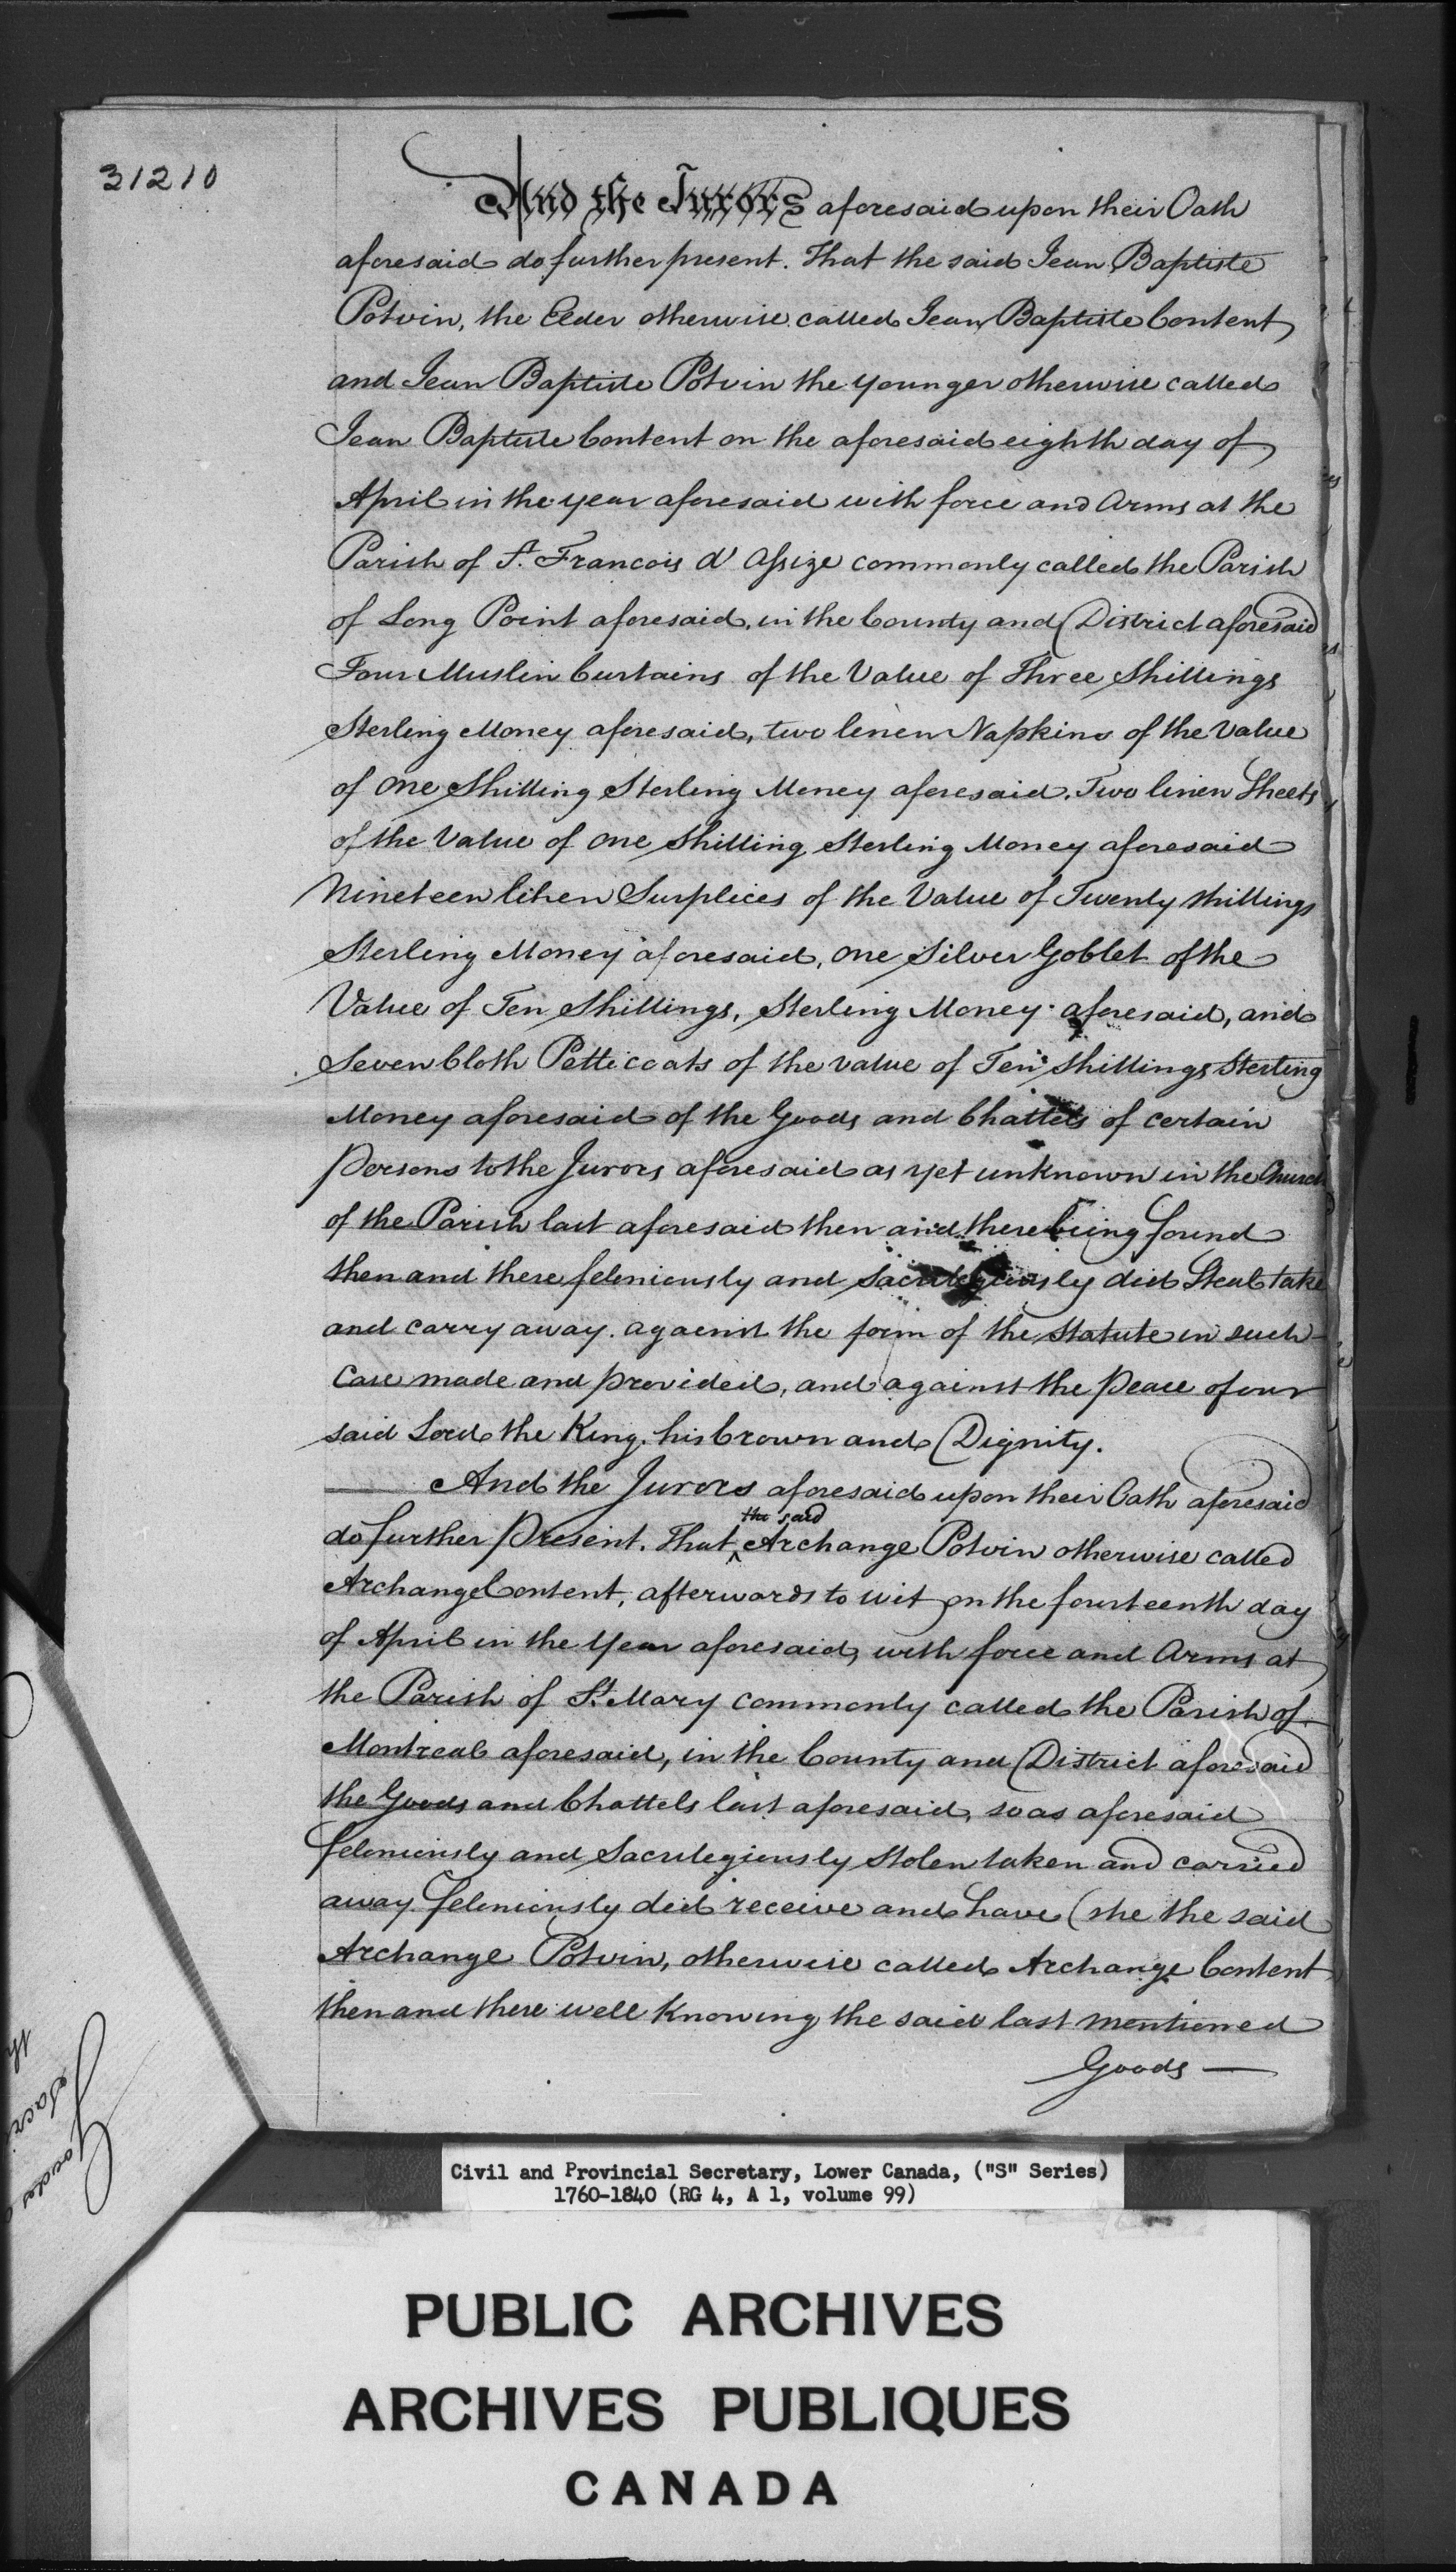 31210
And the Jurors aforesaid upon their Oath
aforesaid do further present. That the said Jean Baptiste
Potvin, the Elder otherwise called Jean Baptiste Content
and Jean Baptiste Potvin the younger otherwise called
Jean Baptiste Content on the aforesaid eighth day of
April in the year aforesaid with force and Arms at the
Parish of St. Francois d'Assize commonly called the Parish
of Long Point aforesaid, in the County and District aforesaid
Four Muslin Curtains of the Value of Three Shillings
Sterling Money aforesaid, two linen Napkins of the Value
of One Shilling Sterling Money aforesaid. Two linen Sheets
of the Value of One Shilling Sterling Money aforesaid
Nineteen linen Surplices of the Value of Twenty Shillings
Sterling Money aforesaid, One Silver Goblet of the
Value of Ten Shillings, Sterling Money aforesaid, and
Seven Cloth Petticoats of the value of Ten Shillings Sterling
Money aforesaid of the Goods and Chattels of certain
Persons to the Jurors aforesaid as yet unknown in the Church
of the Parish last aforesaid then and there being found
then and there feloniously and Sacrilegiously did Steal take
and carry away. against the form of the Statute in such
Case made and provided, and against the Peace of our
said Lord the King, his Crown and Dignity.
And the Jurors aforesaid upon their Oath aforesaid
do further Present. That the said Archange Potvin otherwise called
Archange Content, afterwards to wit on the fourteenth day
of April in the Year aforesaid, with force and Arms at
the Parish of St. Mary commonly called the Parish of
Montreal aforesaid, in the County and District aforesaid
the Goods and Chattels last aforesaid, so as aforesaid
feloniously and Sacrilegiously Stolen taken and carried
away feloniously did receive and have (she the said
Archange Potvin, otherwise called Archange Content
then and there well Knowing the said last mentioned
Goods —
Civil and Provincial Secretary, Lower Canada, ("S" Series)
1760-1840 (RG 4, A 1, volume 99)
PUBLIC ARCHIVES
ARCHIVES PUBLIQUES
CANADA